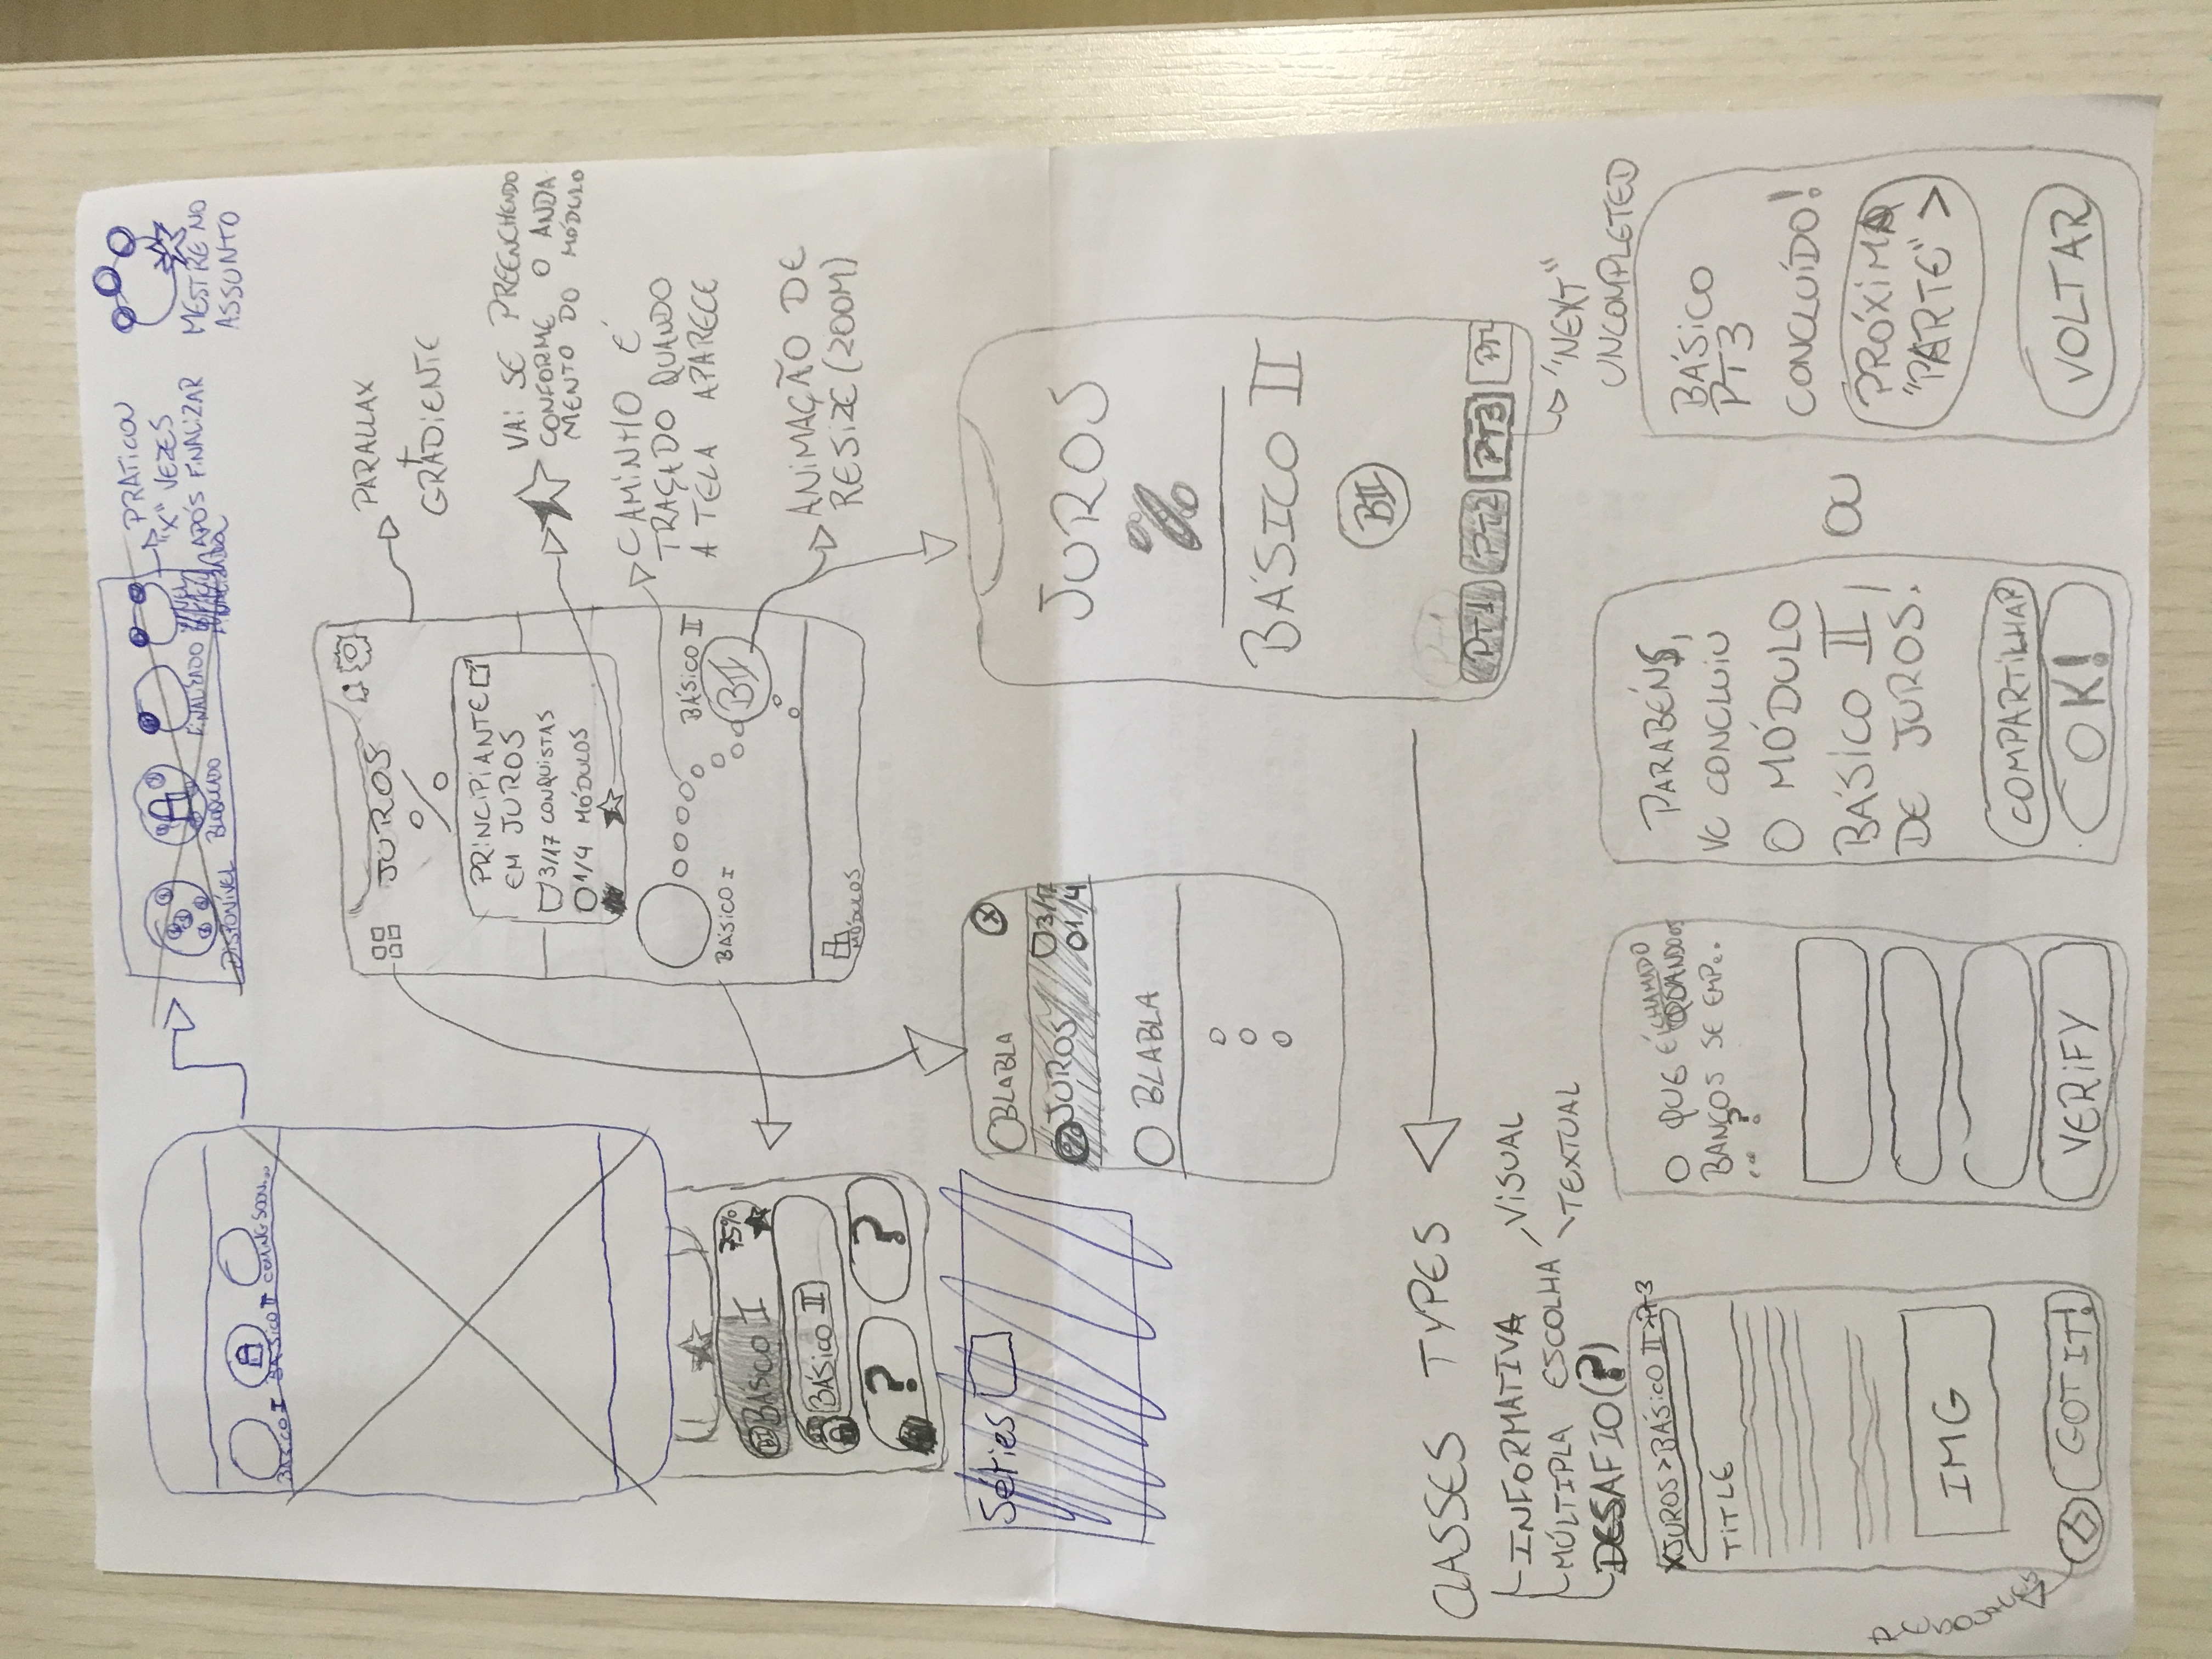 BÁSICO I
BÁSICO II
COMING SOON...
DISPONÍVEL
BLOQUEADO
FINALIZADO
PRATICOU
"X" VEZES
APÓS FINALIZAR
MESTRE NO
ASSUNTO
JUROS
PRINCIPIANTE
EM JUROS
3/17 CONQUISTAS
1/4 MÓDULOS
BÁSICO I
BÁSICO II
BII
MÓDULOS
PARALLAX
+
GRADIENTE
VAI SE PREENCHENDO
CONFORME O ANDA
MENTO DO MÓDULO
CAMINHO É
TRAÇADO QUANDO
A TELA APARECE
ANIMAÇÃO DE
RESIZE (ZOOM)
BI BÁSICO I 75%
BÁSICO II
? ?
Series
BLABLA X
% JUROS 3/17
1/4
BLABLA
JUROS
%
BÁSICO II
BII
PT1
PT1 PT2 PT3 PT
"NEXT"
UNCOMPLETED
CLASSES TYPES
INFORMATIVA
MÚLTIPLA ESCOLHA
VISUAL
TEXTUAL
DESAFIO(?)
X JUROS > BÁSICO II > PT3
TITLE
IMG
GOT IT!
O QUE É CHAMADO
QUANDO OS
BANCOS SE EMPE.
... ?
VERIFY
PARABÉNS,
VC CONCLUIU
O MÓDULO
BÁSICO II,
DE JUROS!
COMPARTILHAR
OK!
OU
BÁSICO
PT3
CONCLUÍDO!
PRÓXIMA
"PARTE" >
VOLTAR